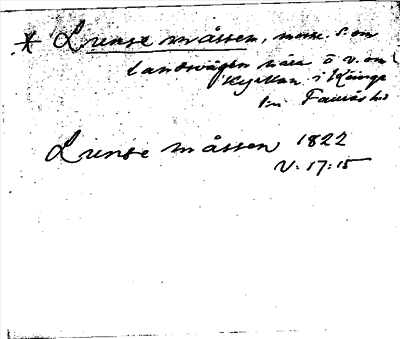 * Lunse måssen, mosse S. om
landsvägen nära o v. om
kyrkan i Käinge
sn Faurås hd
Lunse måssen 1822
V: 17: 15